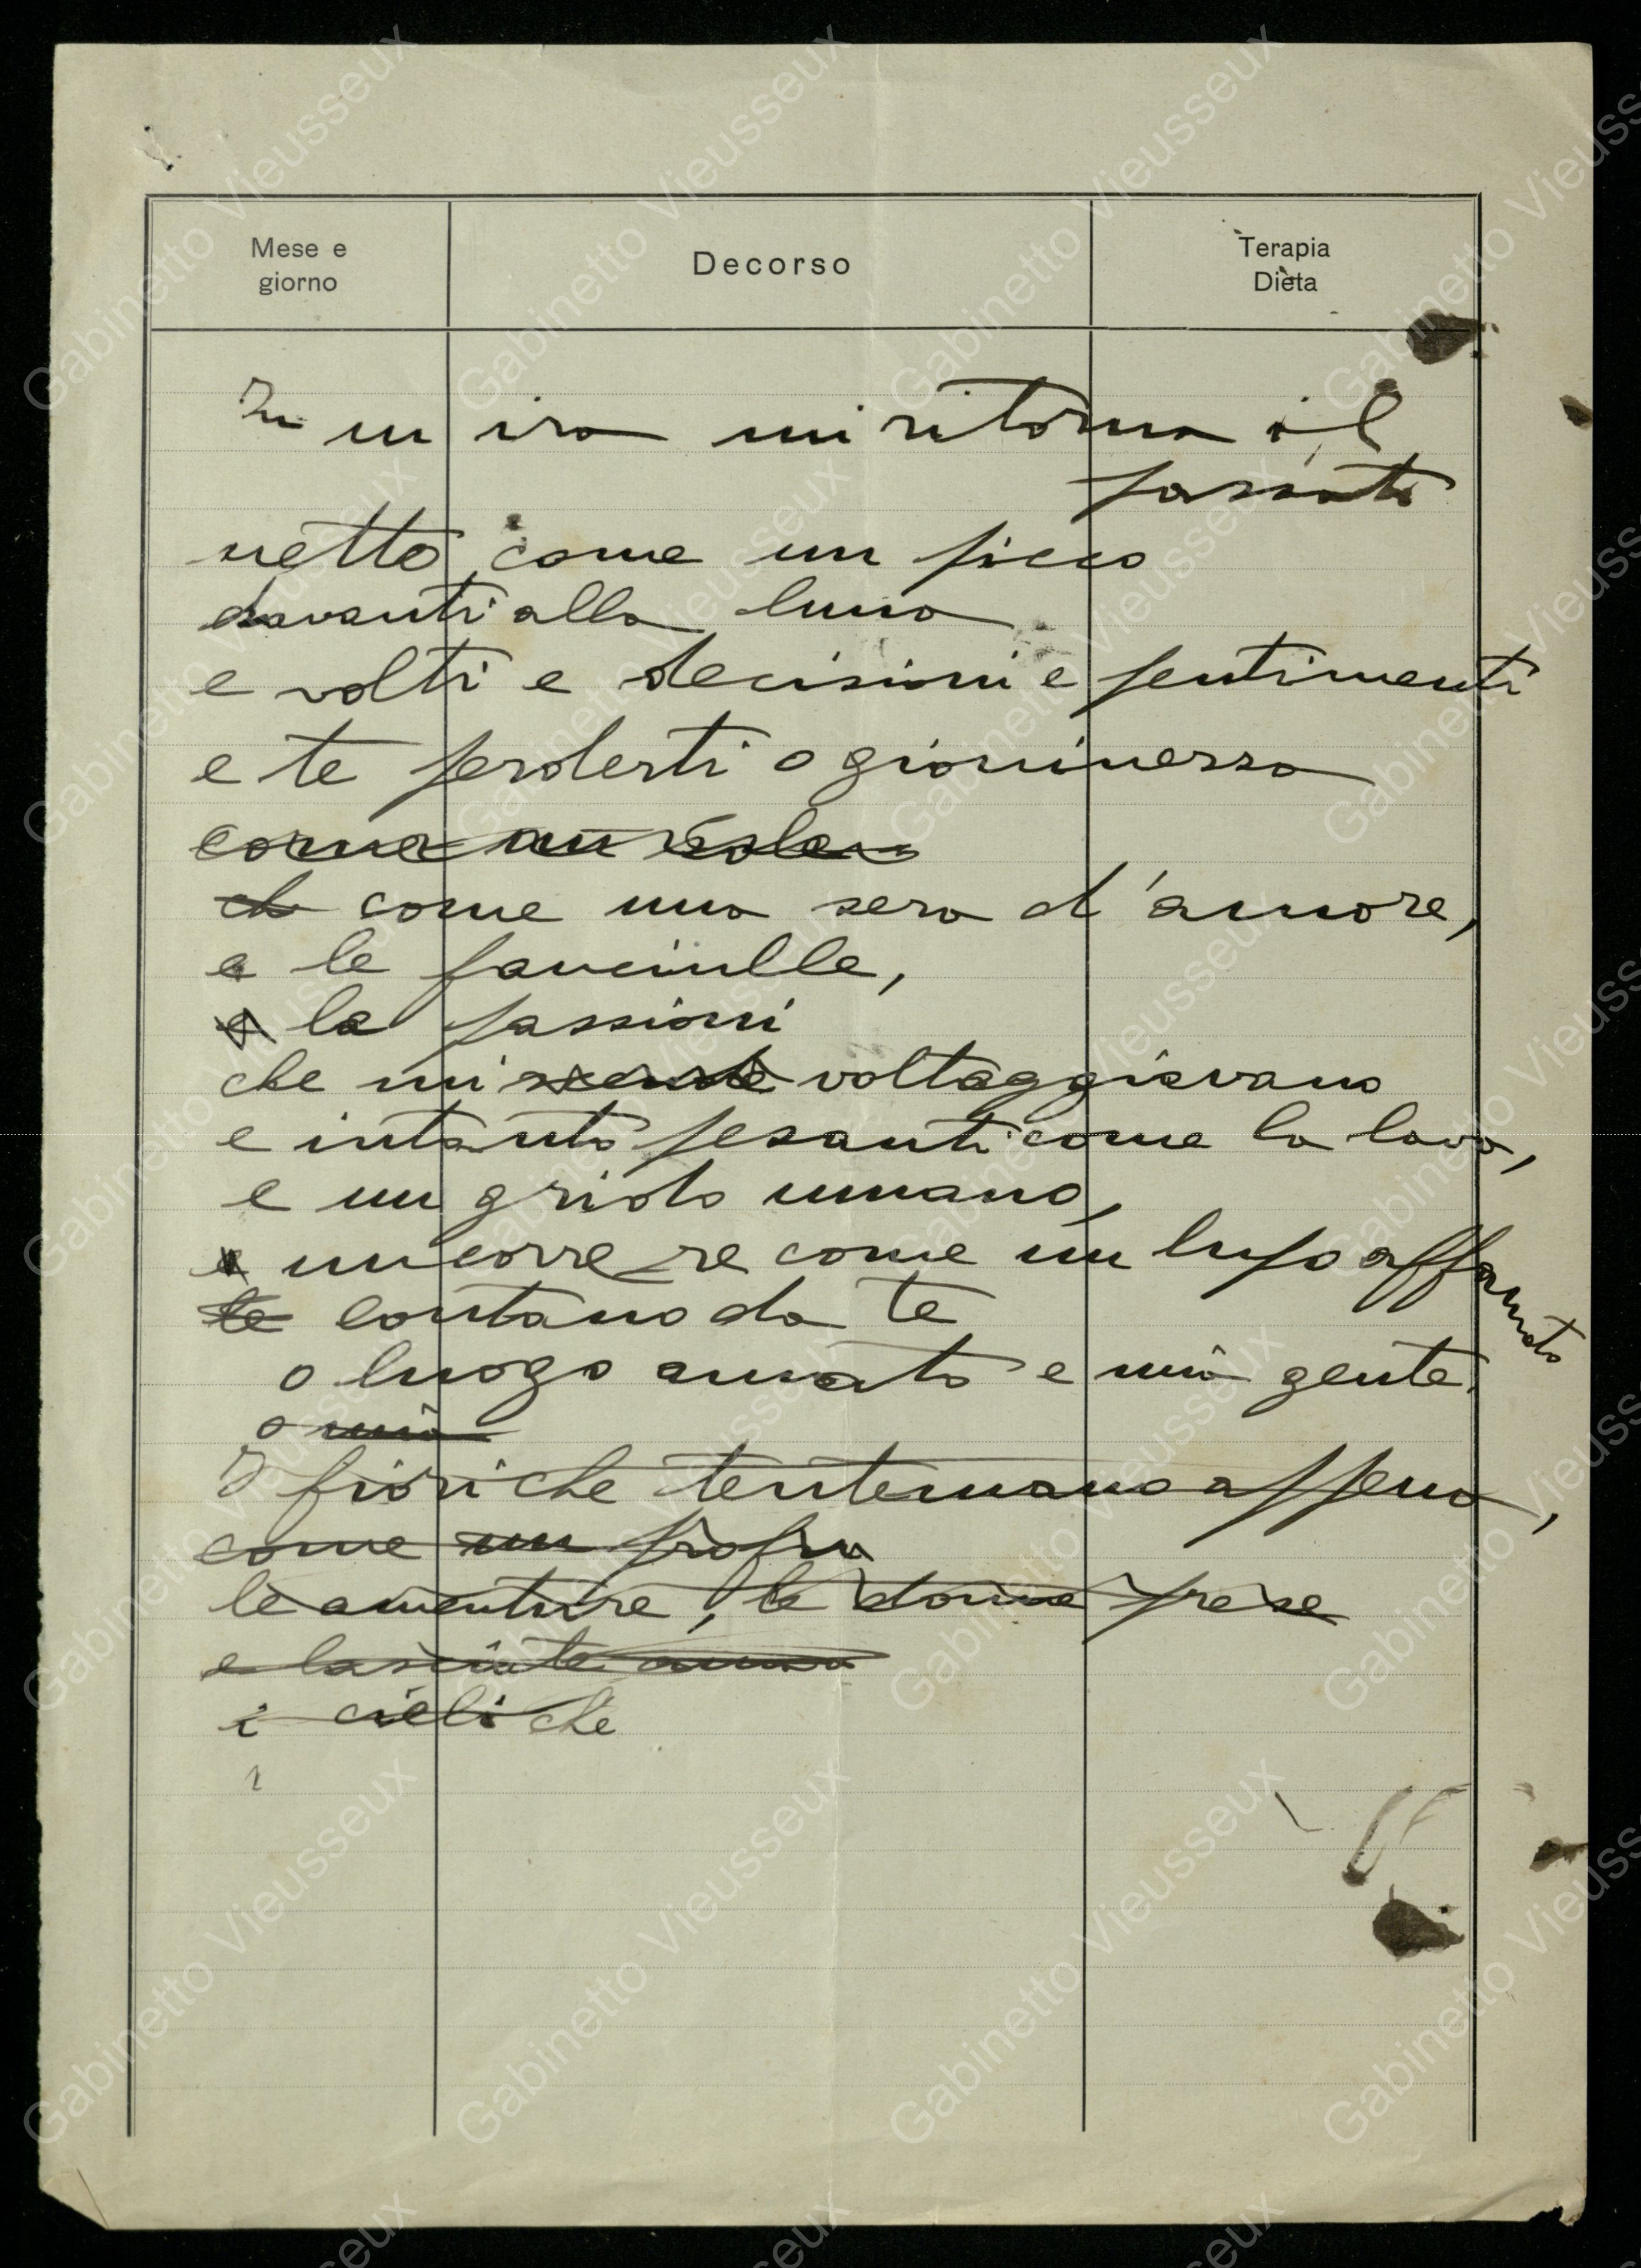 Mese e
giorno
Decorso
Terapia
Dieta
In un ira mi ritorna il
passato
netto come un picco
davanti alla luna
e volti e decisioni e sentimenti
e te perderti o giovinezza
come un
ch come una sera d'amore,
e le fanciulle,
e le passioni
che mi volteggiavano
e intanto pesanti come la lava,
e un grido umano,
e un correre come un lupo affamato
te lontano da te
o luogo amato e mia gente.
o mia
I fiori che tentennano appena,
come un profu
le avventure, le donne prese
e lasciate
i cieli che
Gabinetto Vieusseux